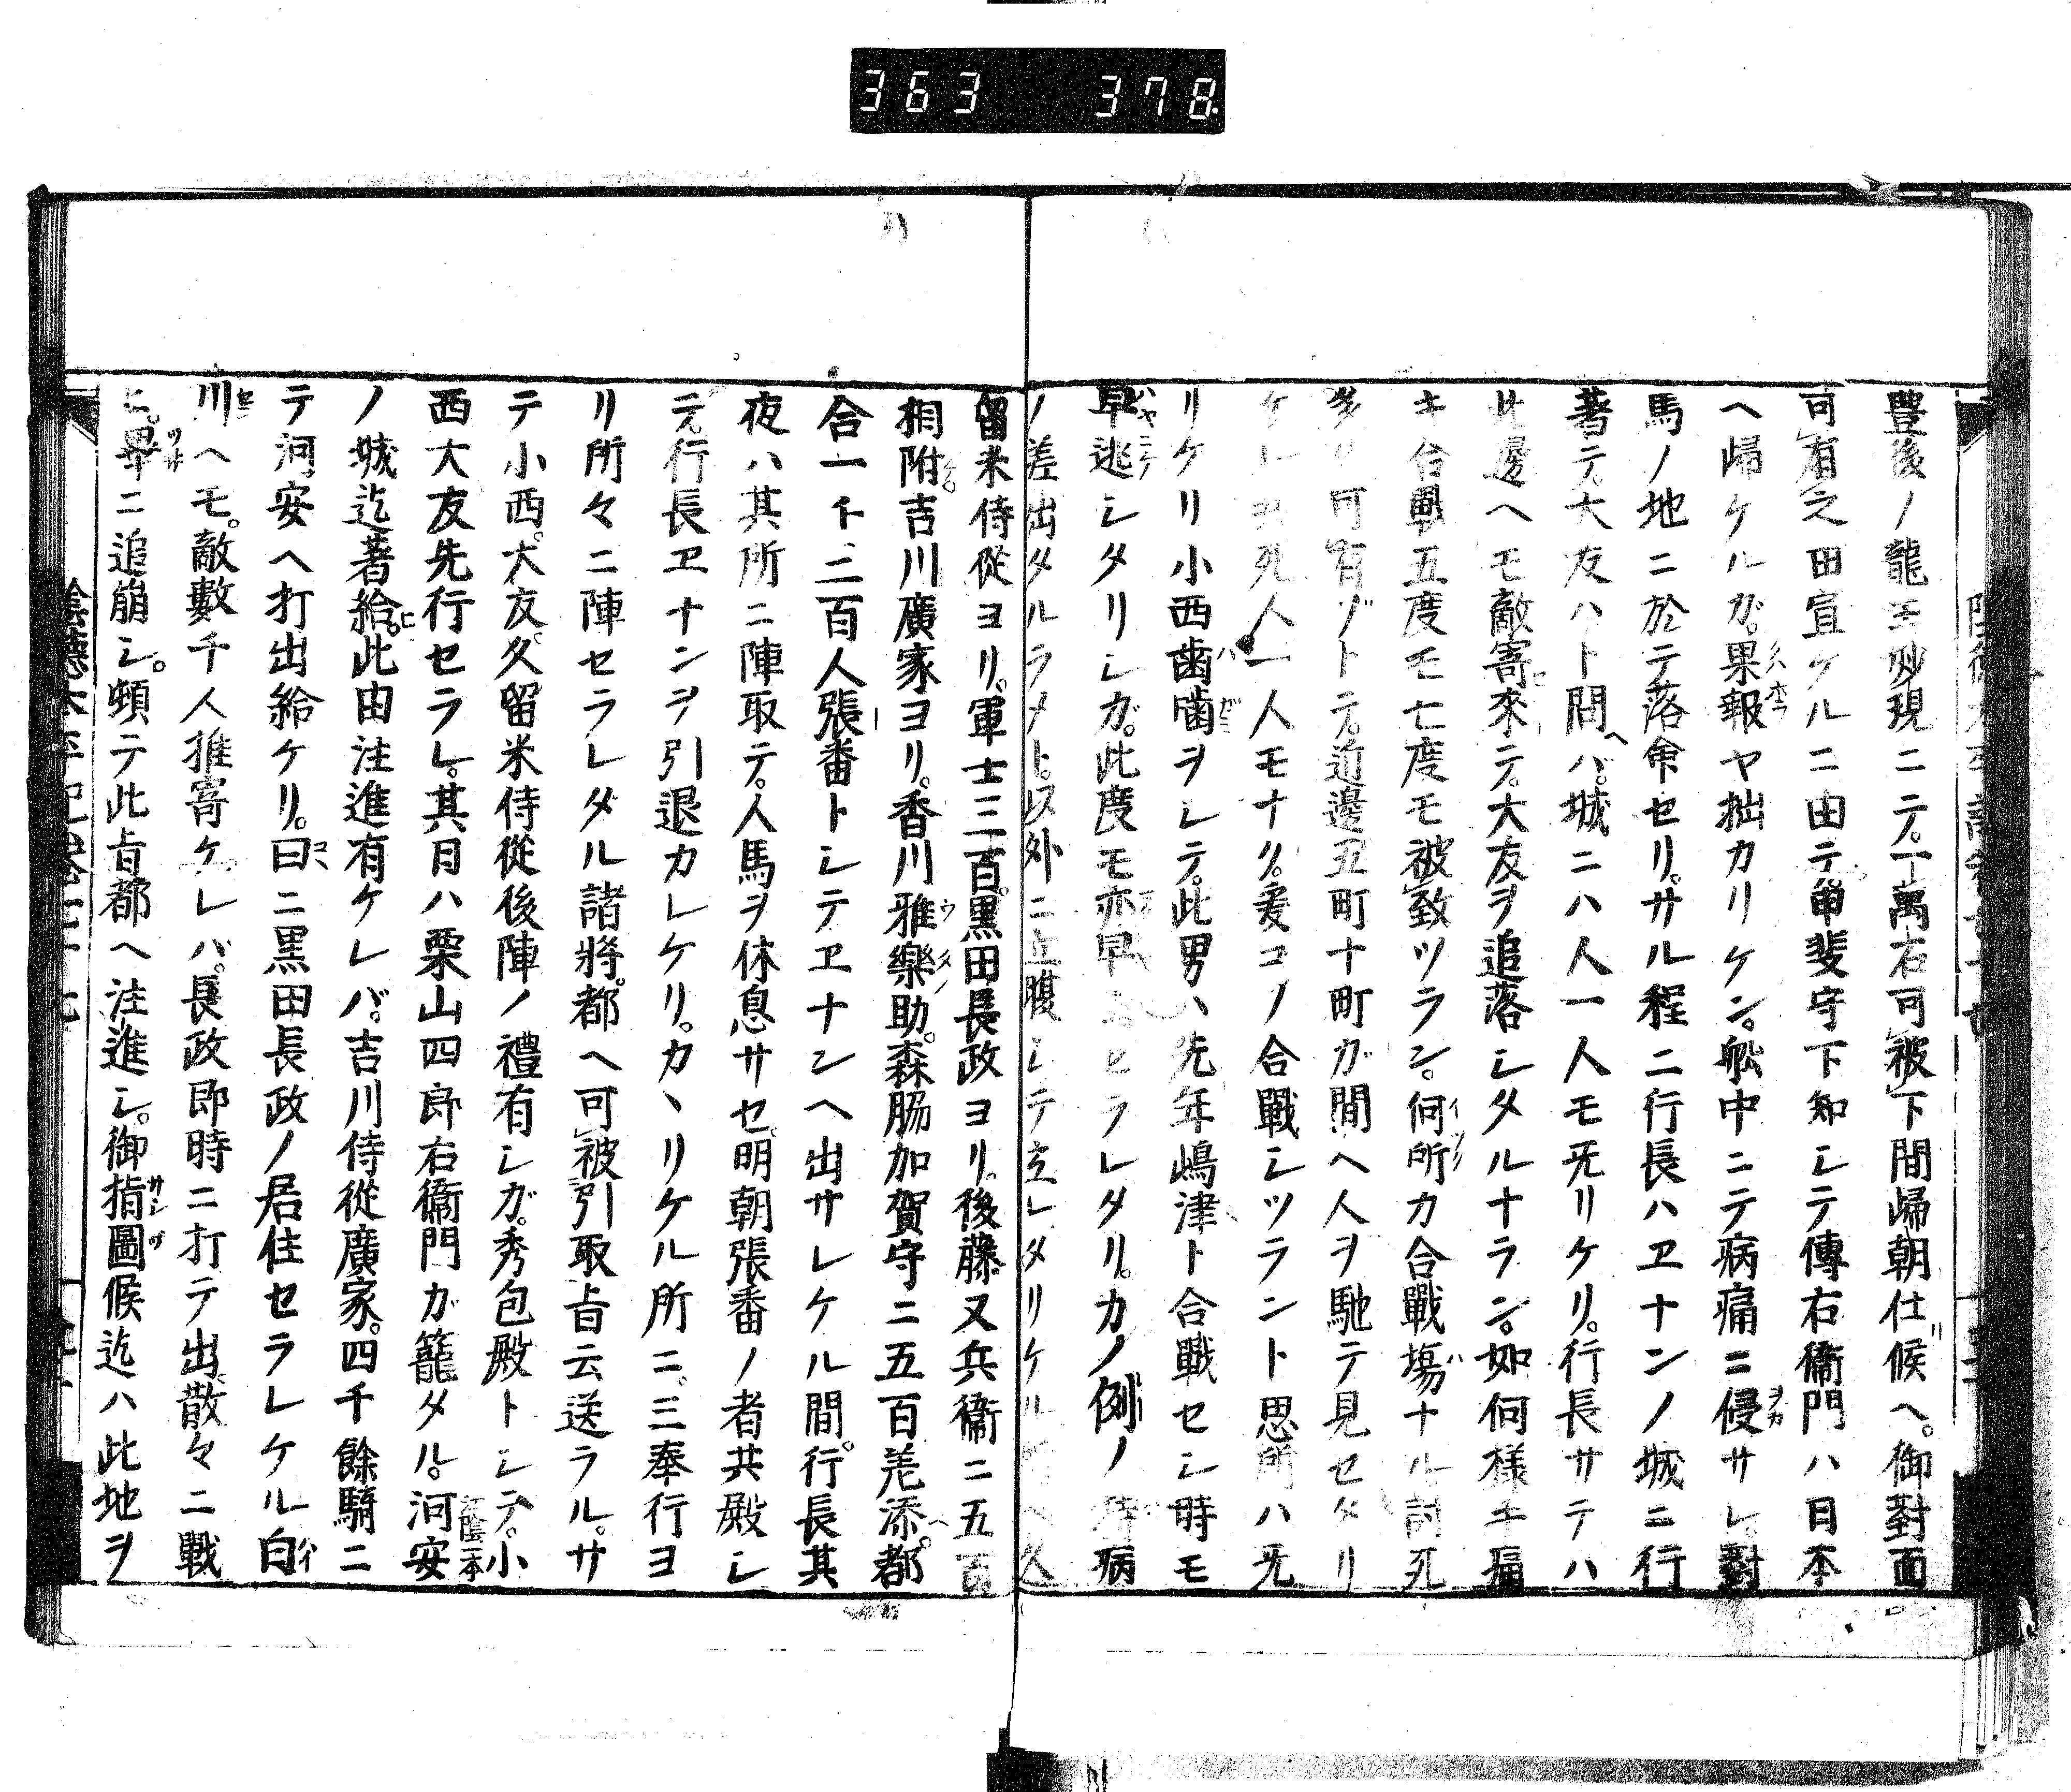 363 378
豊後ノ龍王妙現ニテ。一萬石可被下間歸朝仕候ヘ。御對面
可有之田宣ケルニ由テ。甲斐守下知シテ傳右衞門ハ日本
ヘ歸ケルガ。果報ヤ拙カリケン。舩中ニテ病痛ニ侵サレ。對
馬ノ地ニ於テ落命セリ。サル程ニ行長ハヱナンノ城ニ行
著テ。大友ハト問ヘバ。城ニハ人一人モ死リケリ。行長サテハ
此邊ヘモ敵寄來テ。大友ヲ追落シタルナラン。如何樣手痛
キ合戰五度モ七度モ被致ツラン。何所カ合戰塲ナル討死
多ク可有ゾトテ。近邊五町十町ガ間ヘ人ヲ馳テ見セタリ
ケレ死人一人モナク。爰コソ合戰シツラント思所ハ无
リケリ小西齒嚙ヲシテ。此男ハ先年嶋津ト合戰セシ時モ
早逃シタリシガ。此度モ亦早セラレタリ。カノ例ノ病
ノ差出タルラメト。以外ニ立腹シテ立レタリケル久
留米侍從ヨリ。軍士三百。黒田長政ヨリ。後藤又兵衞ニ五百
相附。吉川廣家ヨリ。香川雅樂助。森脇加賀守ニ五百差添。都
合一千二百人張番トシテヱナンヘ出サレケル間。行長其
夜ハ其所ニ陣取テ。人馬ヲ休息サセ。明朝張番ノ者共殿シ
テ。行長ヱナンヲ引退カレケリ。カヽリケル所ニ。三奉行ヨ
リ所々ニ陣セラレタル諸將。都ヘ可被引取旨云送ラル。サ
テ小西。大友。久留米侍從後陣ノ禮有シガ。秀包殿トシテ。小
西大友先行セラレ。其月ハ栗山四郎右衞門ガ籠タル。河安
ノ城迄著給ヒ。此由注進有ケレバ。吉川侍從廣家。四千餘騎ニ
テ河安ヘ打出給ケリ。曰ニ黒田長政ノ居住セラレケル白
川ヘモ。敵數千人推寄ケレバ。長政即時ニ打テ出。散々ニ戰
ヒ。畢ニ追崩シ。頓テ此旨都ヘ注進シ。御指圖候迄ハ此地ヲ